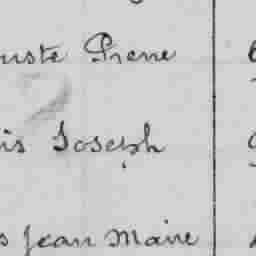 uste Pierre
is Joseph
s Jean Marie